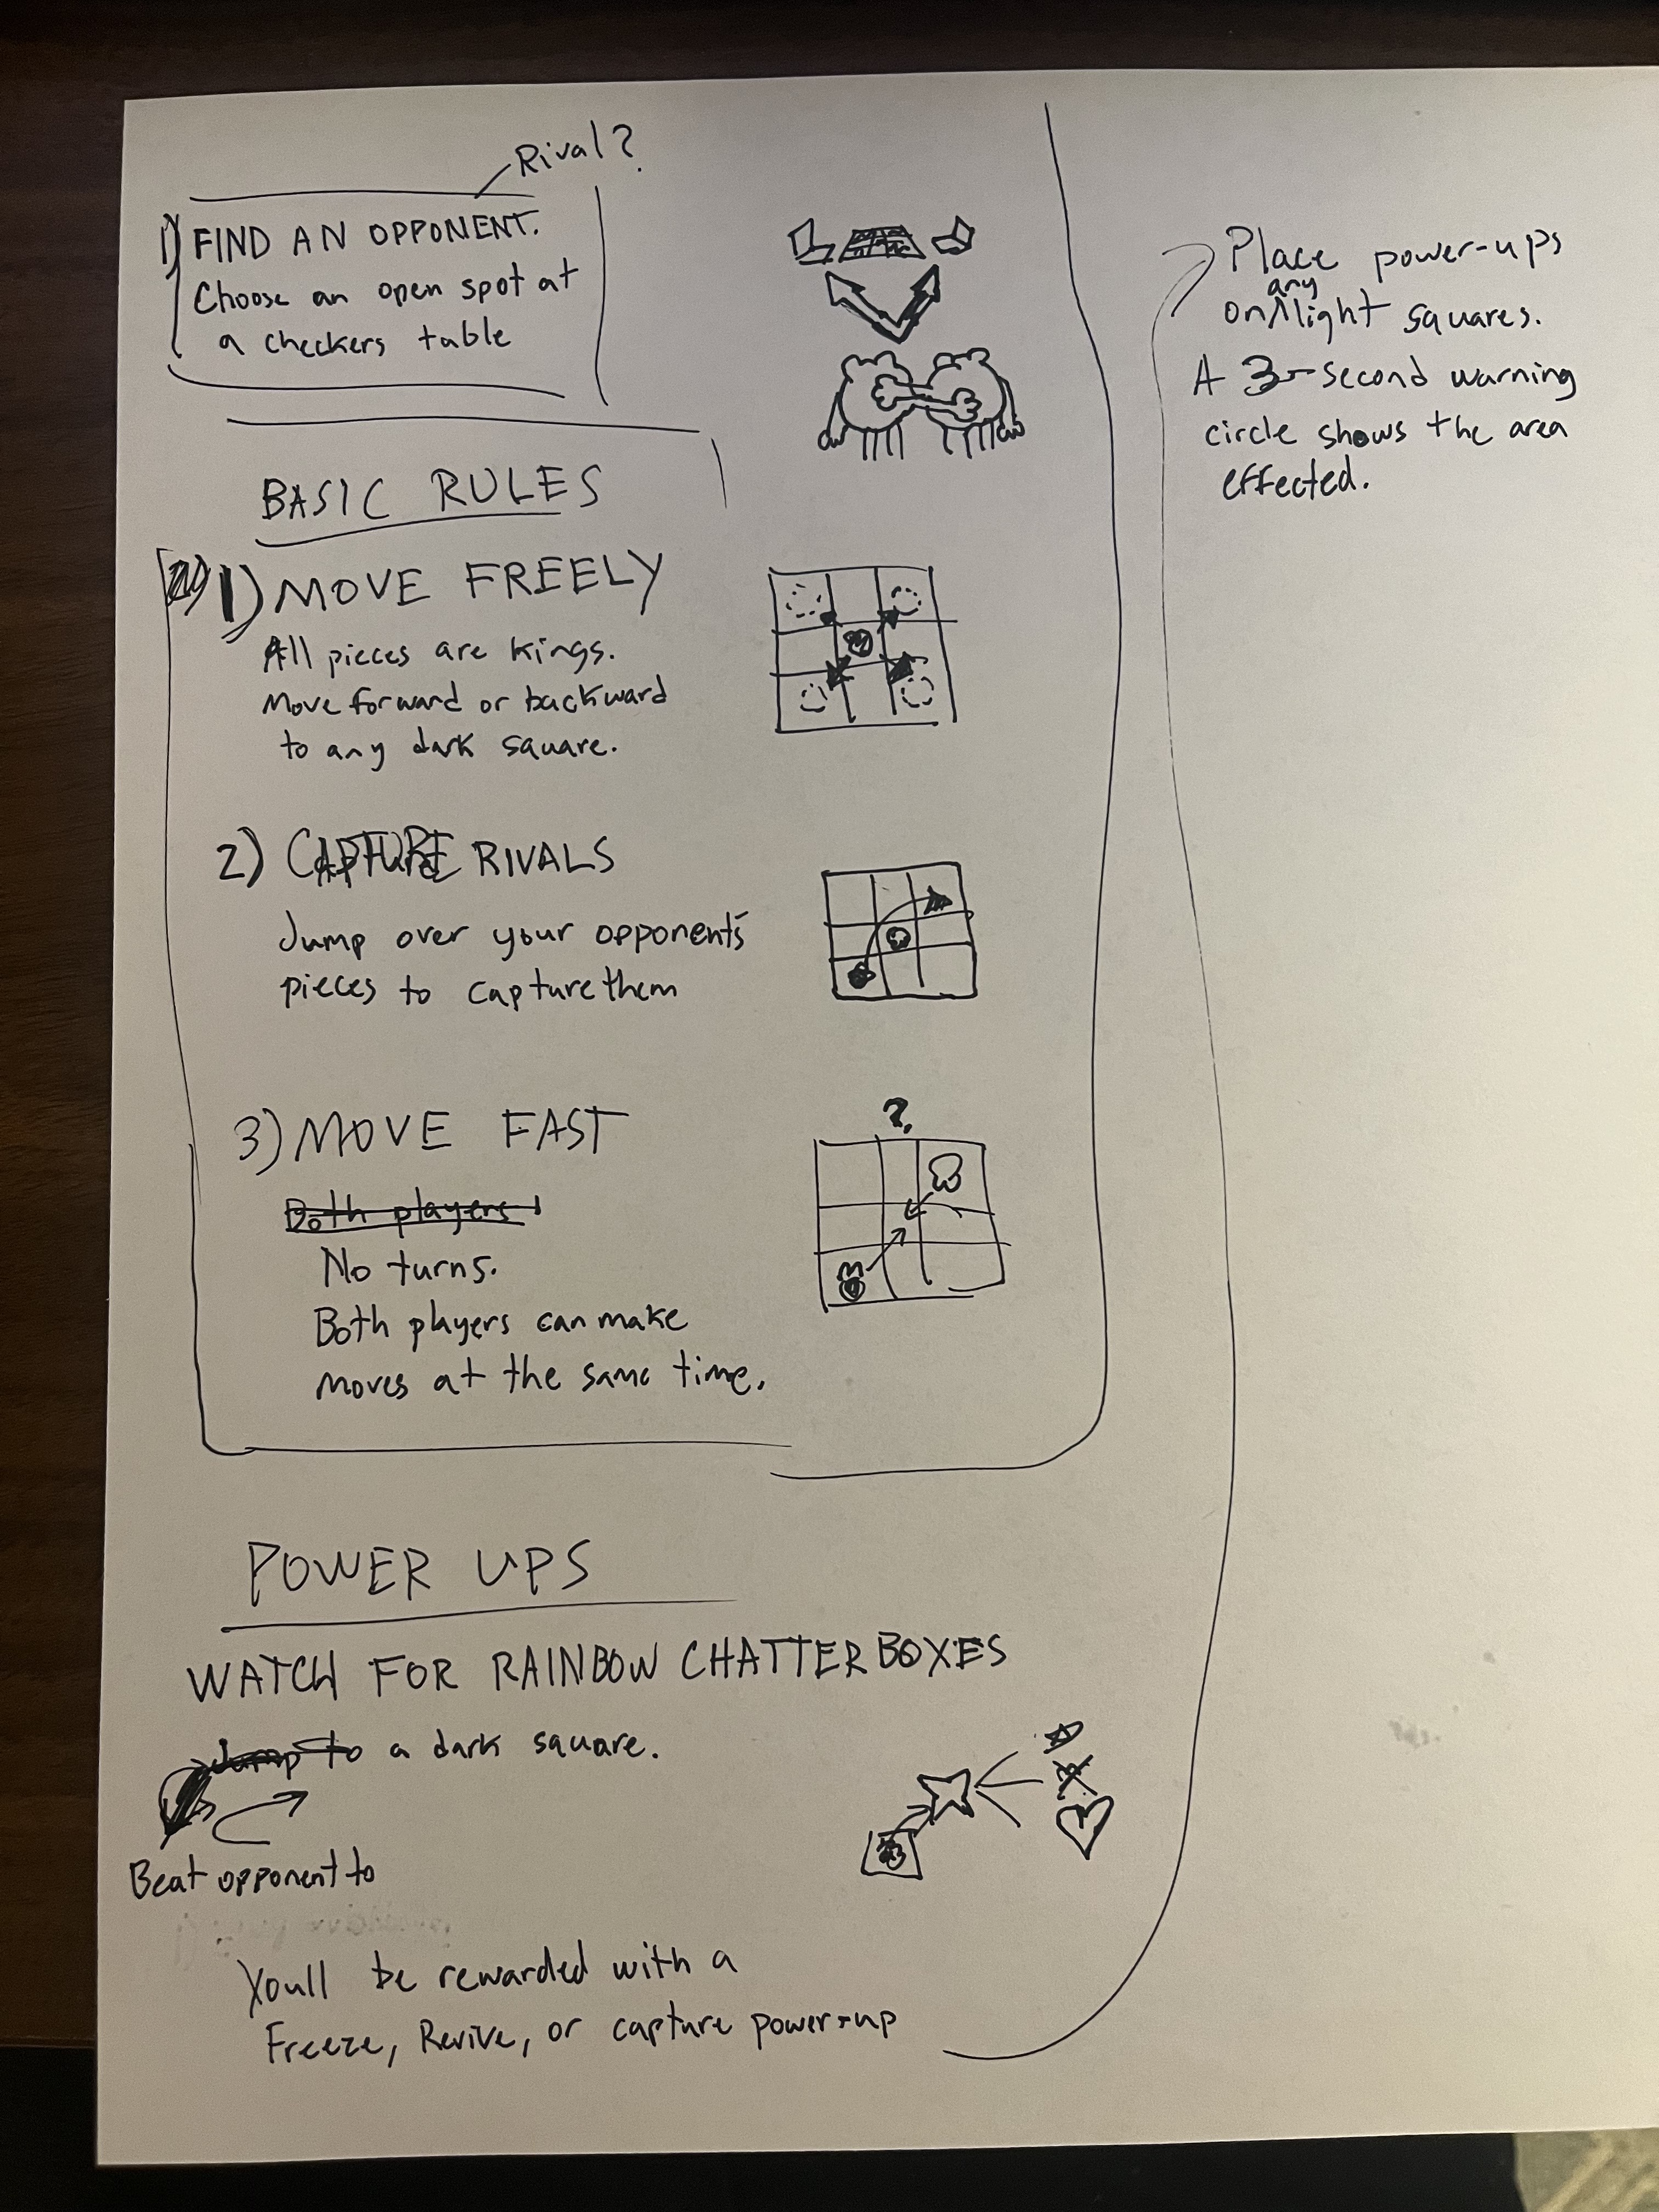 Rival?
1) FIND AN OPPONENT.
Choose an open spot at
a checkers table
BASIC RULES
1) MOVE FREELY
All pieces are kings.
Move forward or backward
to any dark square.
2) CAPTURE RIVALS
Jump over your opponent's
pieces to capture them
?
3) MOVE FAST
Both players
No turns.
Both players can make
moves at the same time.
POWER UPS
WATCH FOR RAINBOW CHATTERBOXES
Jump to a dark square.
Beat opponent to
Youll be rewarded with a
Freeze, Revive, or capture power-up
Place power-ups
any
on light squares.
A 3-second warning
circle shows the area
effected.